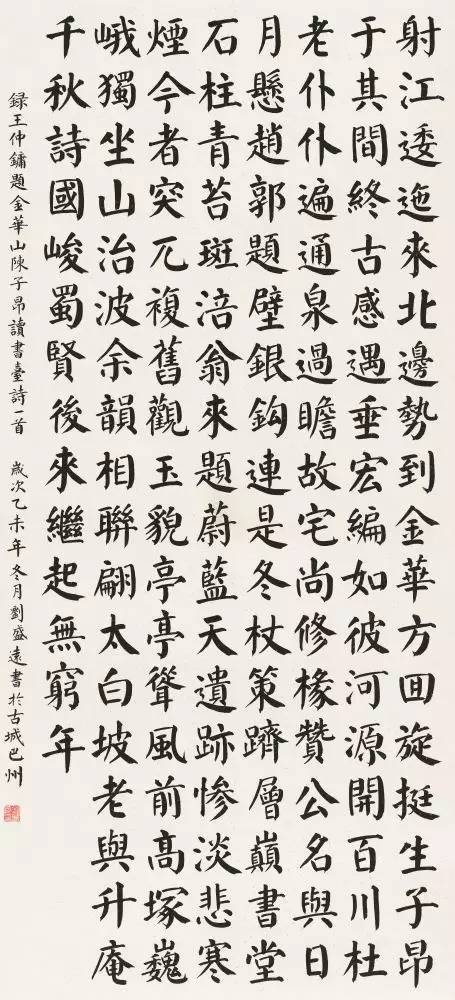 射江逶迤來北邊勢到金華方囬旋挺生子昂
于其間終古感遇垂宏編如彼河源開百川杜
老仆仆遍通泉過瞻故宅尚修椽贊公名與日
月懸趙郭題壁銀鈎連是冬杖策躋層巔書堂
石柱青苔斑涪翁來題蔚藍天遺跡慘淡悲寒
煙今者突兀複舊觀玉貌亭亭聳風前高塚巍
峨獨坐山治波余韻相聯翩太白坡老與升庵
千秋詩國峻蜀賢後來繼起無窮年
録王仲鏞題金華山陳子昂讀書臺詩一首 歲次乙未年冬月劉盛遠書於古城巴州